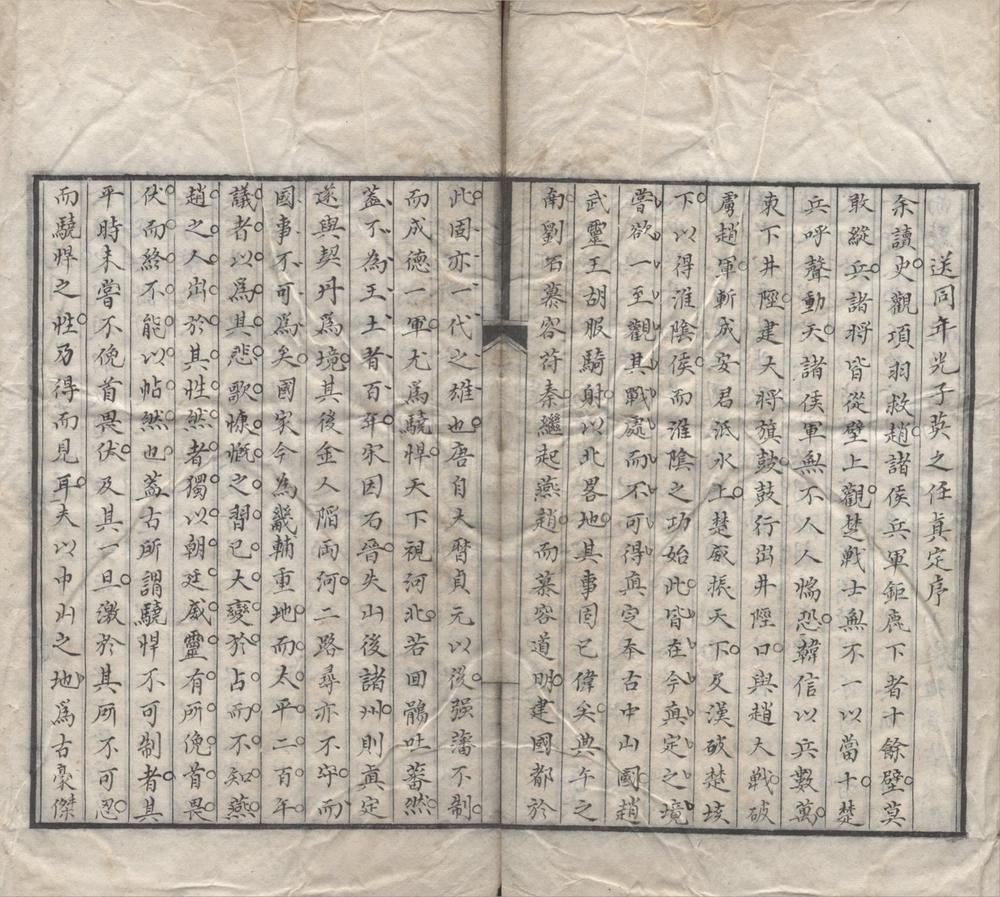 送同年光子英之任真定序
余讀史觀項羽救趙諸侯兵軍鉅鹿下者十餘壁莫
敢縱兵諸將皆從壁上觀楚戰士無不一以當十楚
兵呼聲動天諸侯軍無不人人惴恐韓信以兵數萬
東下井陘建大將旗鼓鼓行出井陘口與趙大戰破
虜趙軍斬成安君泜水上楚威振天下及漢破楚垓
下以得淮陰侯而淮陰之功始此皆在今真定之境
嘗欲一至觀其戰處而不可得真定本古中山國趙
武靈王胡服騎射以北畧地其事固已偉矣典午之
南劉石慕容苻秦繼起燕趙而慕容道明建國都於
此固亦一代之雄也唐自大曆貞元以後强藩不制
而成德一軍尤為驍悍天下視河北若回鶻吐蕃然
蓋不為王土者百年宋因石晋失山後諸州則真定
遂與契丹為境其後金人陷兩河二路尋亦不守而
國事不可為矣國家今為畿輔重地而太平二百年
議者以為其悲歌慷慨之習已大變於古而不知燕
趙之人出於其性然者獨以朝廷威靈有所俛首畏
伏而終不能以帖然也蓋古所謂驍悍不可制者其
平時未嘗不俛首畏伏及其一旦激於其所不可忍
而驍悍之性乃得而見耳夫以中山之地為古豪傑